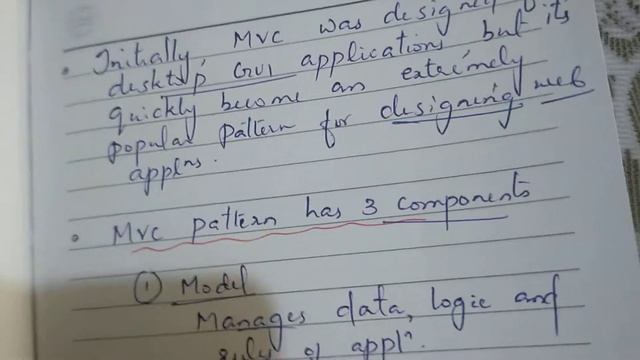 • Initially, MVC was design
desktop GUI applications but its
quickly become an extremely
popular pattern for designing web
applns.
• MVC pattern has 3 components
① Model
Manages data, logic and
of appln.